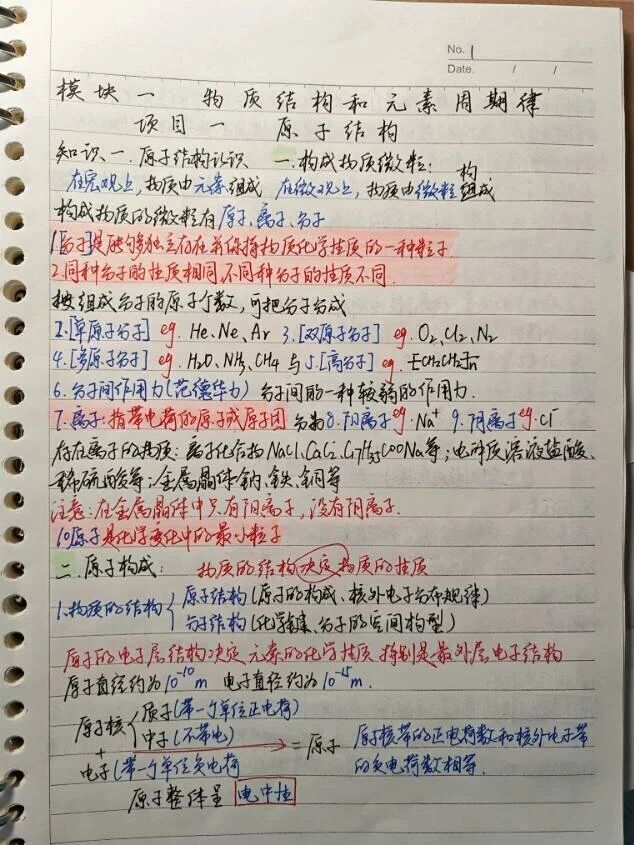 No. 1
Date. / /
模块一 物质结构和元素周期律
项目一 原子结构
知识一.原子结构认识 一.构成物质微粒:
在宏观上,物质由元素组成 在微观上,物质由微粒构组成
构成物质的微粒有原子、离子、分子
1.[分子]是能够独立存在并保持物质化学性质的一种粒子.
2.同种分子的性质相同,不同种分子的性质不同.
按组成分子的原子个数,可把分子分成
2.[单原子分子] eg. He、Ne、Ar 3.[双原子分子] eg. O2、Cl2、N2
4.[多原子分子] eg. H2O、NH3、CH4 与 5.[高分子] eg. -[CH2CH2]n-
6.分子间作用力(范德华力) 分子间的一种较弱的作用力.
7.离子:指带电荷的原子或原子团 分为8.阳离子eg.Na+ 9.阴离子eg.Cl-
存在离子的物质:离子化合物NaCl、CaCl2、C17H35COONa等;电解质溶液盐酸、
稀硫酸等;金属晶体钠、铁、铜等
注意:在金属晶体中只有阳离子,没有阴离子.
10.原子是化学变化中的最小粒子
二.原子构成: 物质的结构决定物质的性质
1.物质的结构{原子结构(原子的构成、核外电子分布规律)
分子结构(化学键、分子的空间构型)
原子的电子层结构决定元素的化学性质 特别是最外层电子结构
原子直径约为10-10m 电子直径约为10-15m.
原子核{质子(带一个单位正电荷)
中子(不带电)
+ =原子 原子核带的正电荷数和核外电子带
电子(带一个单位负电荷 的负电荷数相等.
原子整体呈电中性